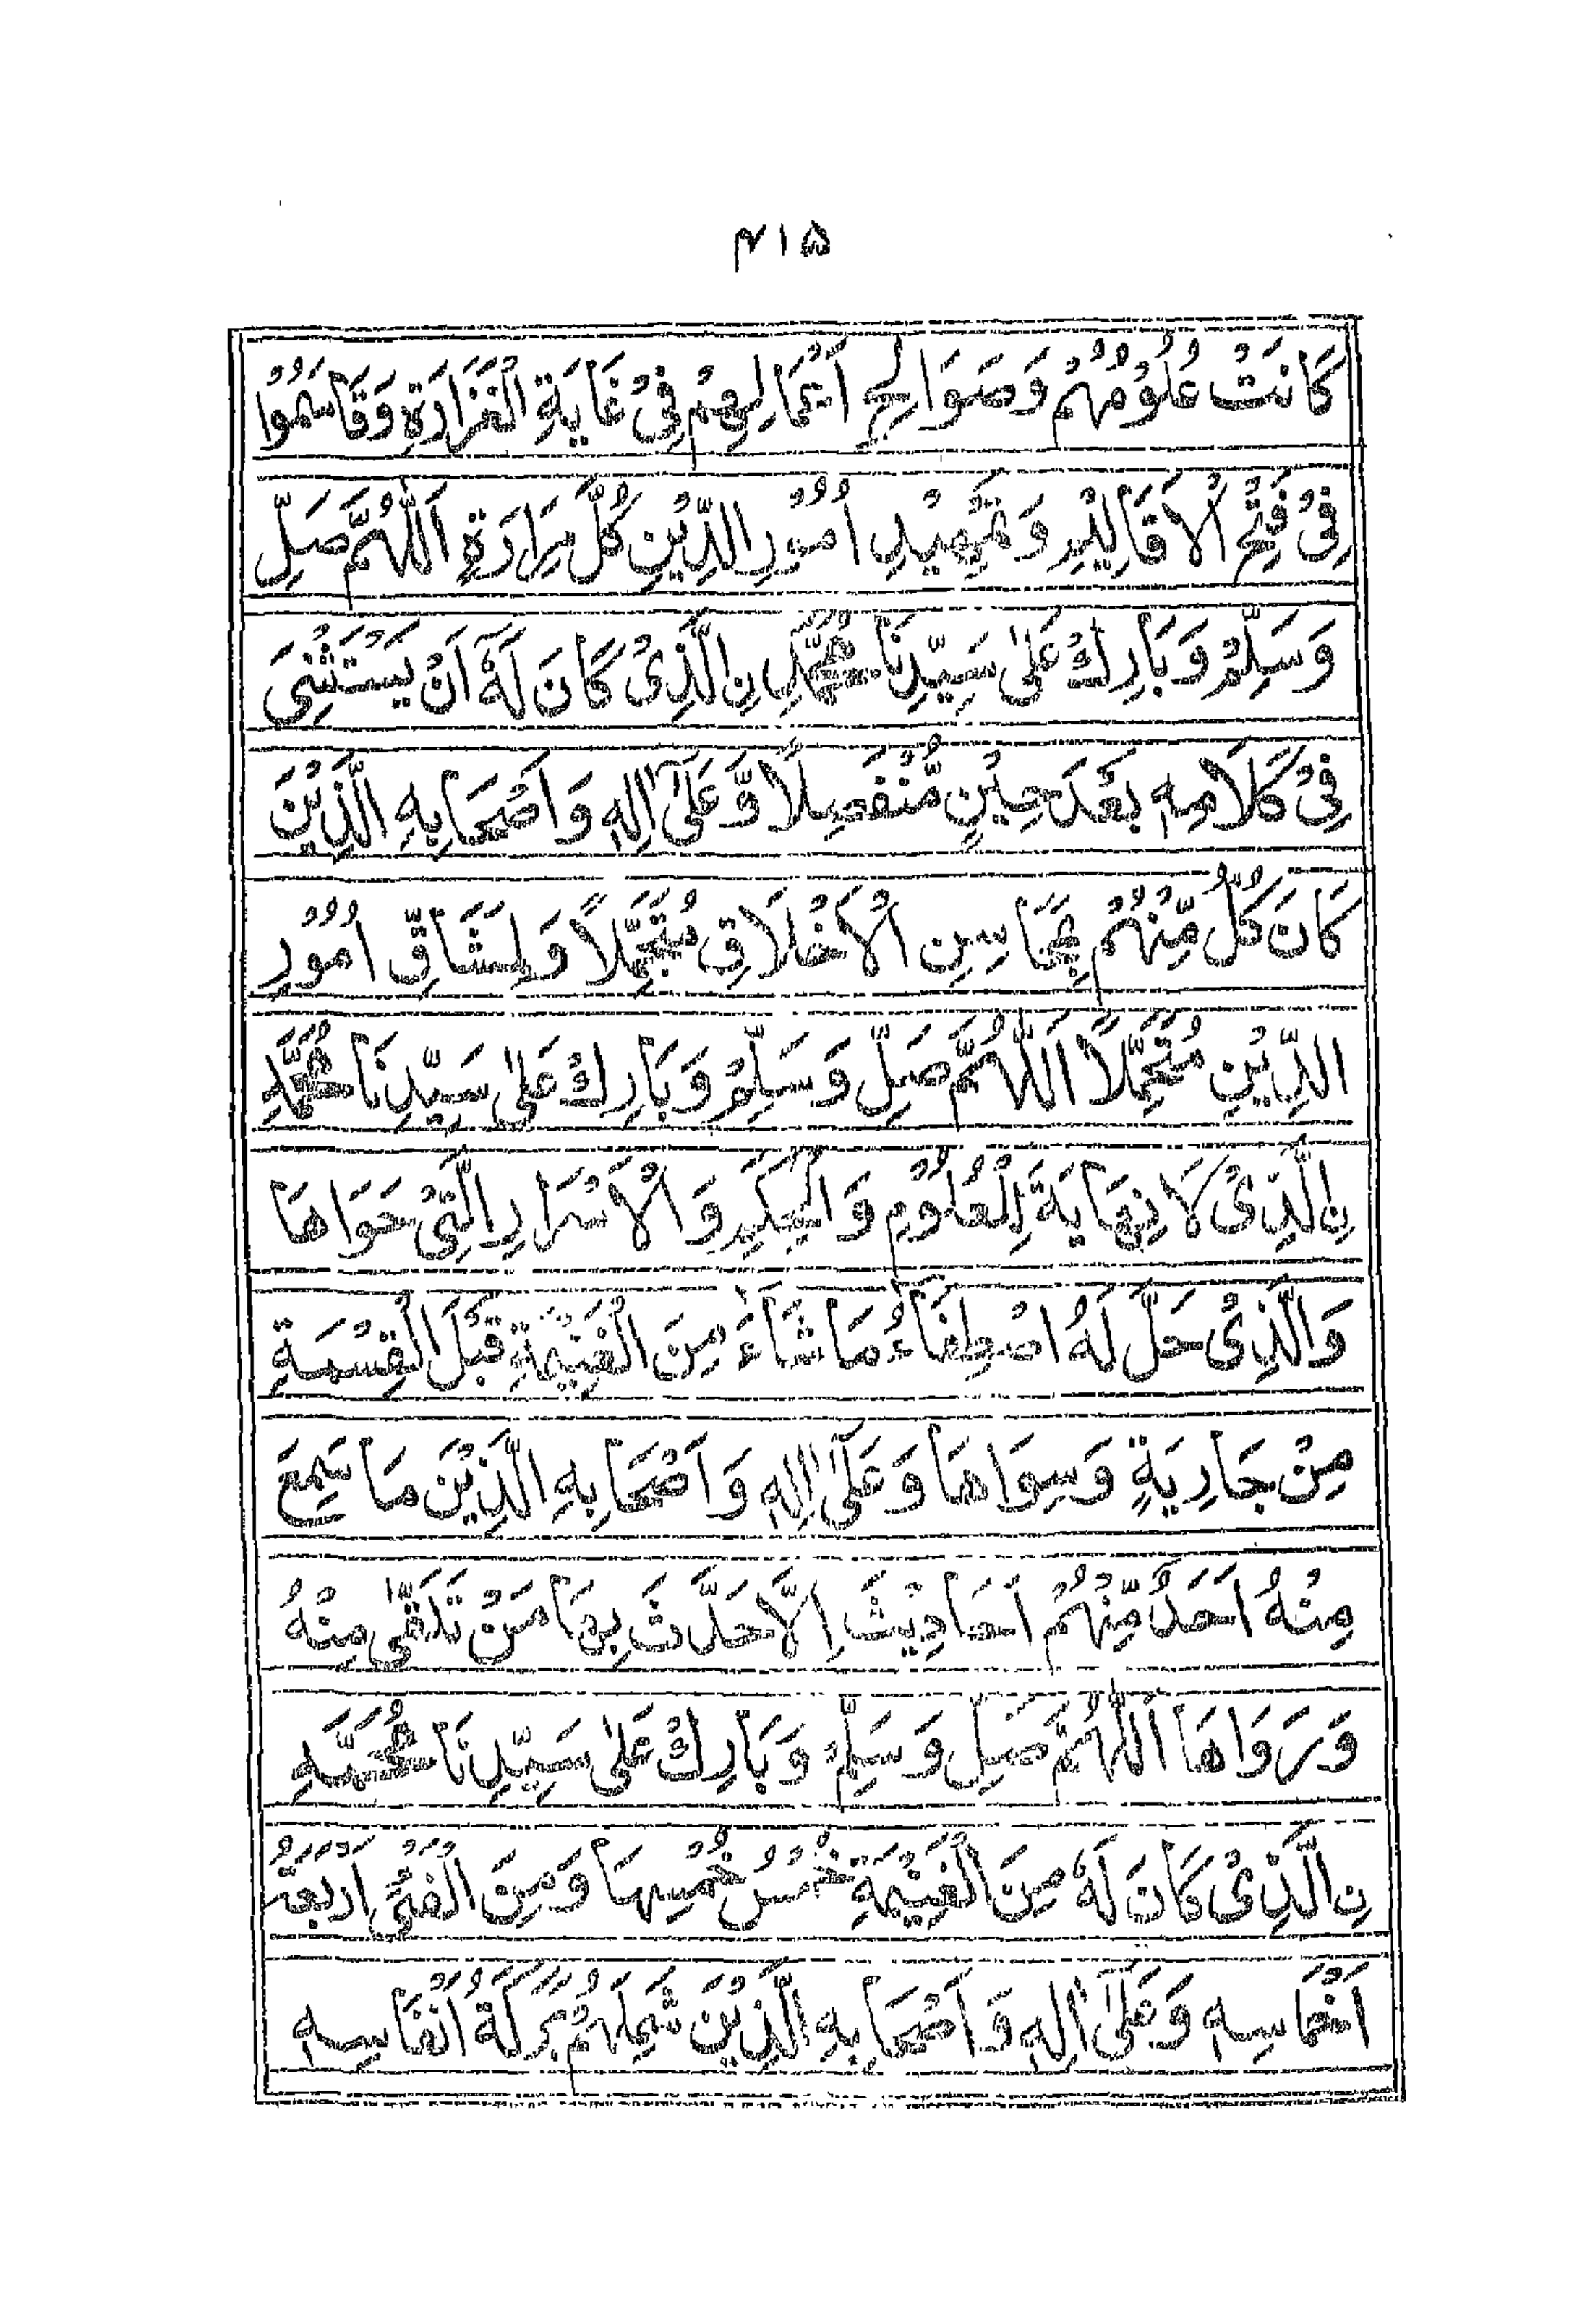 ۴۱۵
كَانَتْ عُلُوْمُهُمْ وَصَوَالِحُ اَعْمَالِهِمْ فِىْ غَايَةِ الْغَزَارَةِ وَقَاسَمُوْا
فِىْ فَتْحِ الْاَقَالِيْمِ وَتَمْهِيْدِ اُمُوْرِ الدِّيْنِ كُلَّ مِرَارَةٍ اَللّٰهُمَّ صَلِّ
وَسَلِّمْ وَبَارِكْ عَلٰى سَيِّدِنَا مُحَمَّدِ نِ الَّذِىْ كَانَ لَهٗ اَنْ يَسْتَثْنِىَ
فِىْ كَلَامِهٖ بَعْدَ حِيْنٍ مُّنْفَصِلًا وَّعَلٰۤى اٰلِهٖ وَاَصْحَابِهِ الَّذِيْنَ
كَانَ كُلٌّ مِّنْهُمْ بِمَحَاسِنِ الْاَخْلَاقِ مُتَجَمِّلًا وَلِمَشَاقِّ اُمُوْرِ
الدِّيْنِ مُتَحَمِّلًا اَللّٰهُمَّ صَلِّ وَسَلِّمْ وَبَارِكْ عَلٰى سَيِّدِنَا مُحَمَّدِ
نِ الَّذِىْ لَا نِهَايَةَ لِلْعُلُوْمِ وَالْحِكَمِ وَالْاَسْرَارِ الَّتِىْ حَوَاهَا
وَالَّذِىْ حَلَّ لَهُ اصْطِفَاءُ مَا شَاءَ مِنَ الْغَنِيْمَةِ قَبْلَ الْقِسْمَةِ
مِنْ جَارِيَةٍ وَسِوَاهَا وَعَلٰۤى اٰلِهٖ وَاَصْحَابِهِ الَّذِيْنَ مَا سَمِعَ
مِنْهُ اَحَدٌ مِّنْهُمْ اَحَادِيْثَ اِلَّا حَدَّثَ بِهَا مَنْ تَلَقّٰى مِنْهُ
وَرَوَاهَا اَللّٰهُمَّ صَلِّ وَسَلِّمْ وَبَارِكْ عَلٰى سَيِّدِنَا مُحَمَّدِ
نِ الَّذِىْ كَانَ لَهٗ مِنَ الْغَنِيْمَةِ خُمُسُ خُمُسِهَا وَمِنَ الْفَىْءِ اَرْبَعَةُ
اَخْمَاسِهٖ وَعَلٰۤى اٰلِهٖ وَاَصْحَابِهِ الَّذِيْنَ شَمِلَهُمْ بَرَكَةُ اَنْفَاسِهٖ